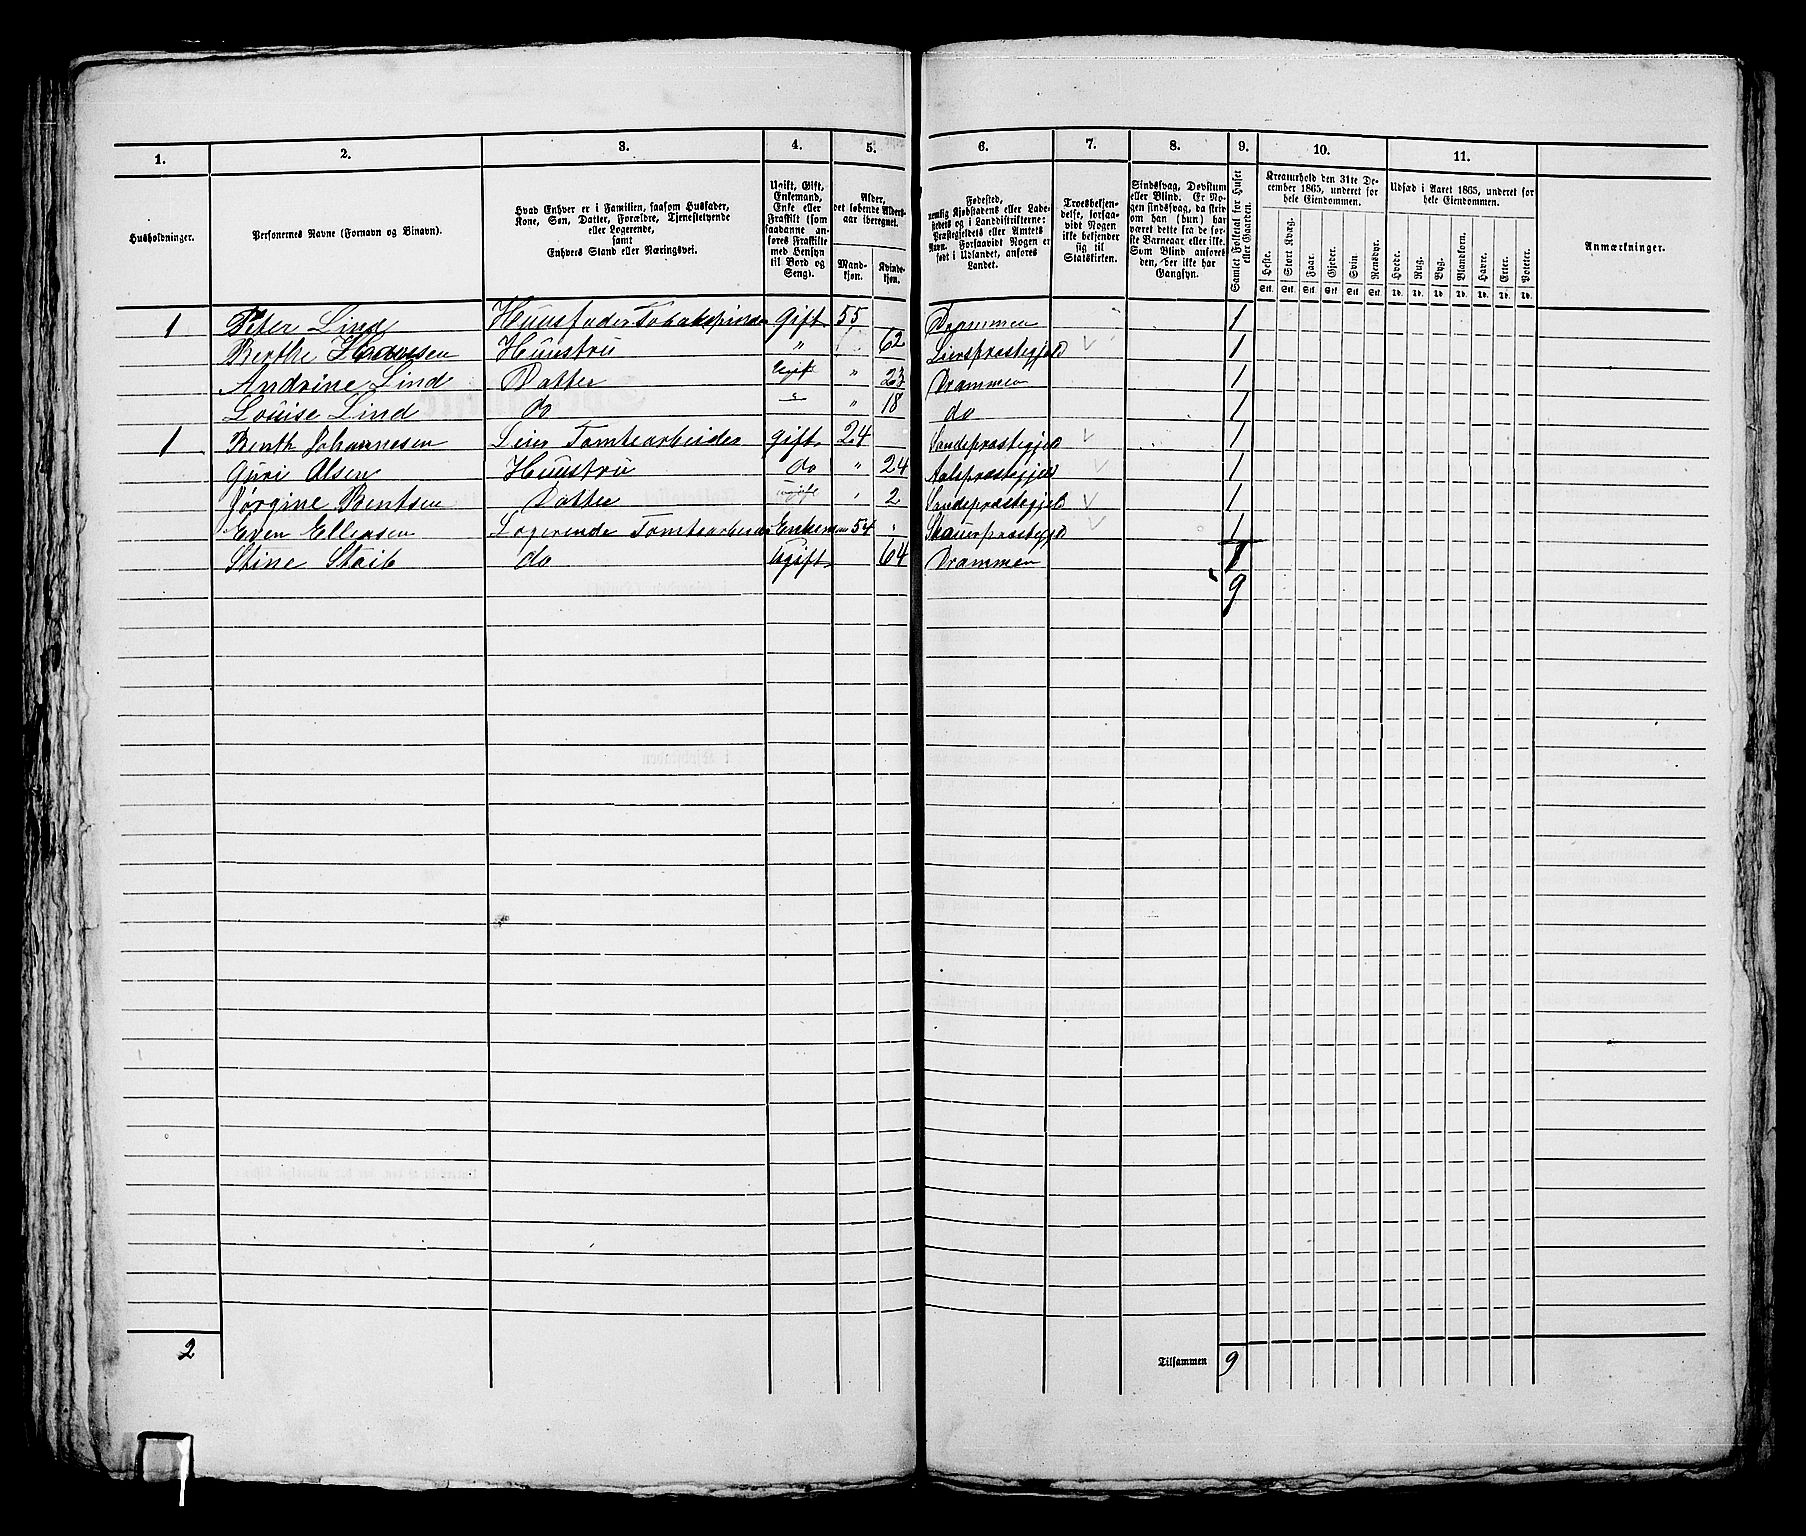 1. 2. 3. 4. 5. 6. 7. 8. 9. 10. 11.
Husholdninger.
Personernes Navne (Fornavn og Binavn).
Hvad Enhver er i Familien, saasom Husfader,
Kone, Søn, Datter, Forældre, Tjenestetyende
eller Logerende,
samt
Enhvers Stand eller Næringsvei.
Ugift, Gift,
Enkemand,
Enke eller
Fraskilt (som
saadanne an-
føres Fraskilte
med Hensyn
til Bord og
Seng).
Alder,
det løbende Alders-
aar iberegnet.
Mand-
kjøn.
Kvinde-
kjøn.
Fødested,
nemlig Kjøbstadens eller Lade-
stedets og i Landdistrikterne:
Præstegjeldets eller Amtets
Navn. Forsaavidt Nogen er
født i Udlandet, anføres
Landet.
Troesbekjen-
delse, forsaa-
vidt Nogen
ikke bekjender
sig til
Statskirken.
Sindssvag, Døvstum
eller Blind. Er No-
gen sindssvag, da skrives
om han (hun) har
været dette fra de før-
ste Barneaar eller ikke.
Som Blind anføres
den, der ikke har
Gangsyn.
Samlet Folketal for Huset
eller Gaarden.
Kreaturhold den 31te De-
cember 1865, underet for
hele Eiendommen.
Heste. Stort Kvæg. Faar. Gjeder. Svin. Rensdyr.
Stk. Stk. Stk. Stk. Stk. Stk.
Udsæd i Aaret 1865, underet for
hele Eiendommen.
Hvede. Rug. Byg. Blandkorn. Havre. Erter. Poteter.
Td. Td. Td. Td. Td. Td. Td.
Anmærkninger.
1 Peter Lind Huusfader Tobakspinder gift 55 Drammen 1
Berthe Hansen Huustru " 62 Lierspræstegjeld 1
Andrine Lind Datter Ugift " 23 Drammen 1
Louise Lind do " " 18 do 1
1 Benth Johannesen Leier Tomtearbeider gift 24 Sandepræstegjeld 1
Guri Olsen Huustru do " 24 Aalspræstegjeld 1
Jørgine Bentsen Datter ugift " 2 Sandepræstegjeld 1
Even Ellensen Logerende Tomtearbeider Enkeman 54 " Skouerpræstegjeld 1
Stine Staib do Ugift 64 Drammen 1
9
2 Tilsammen 9